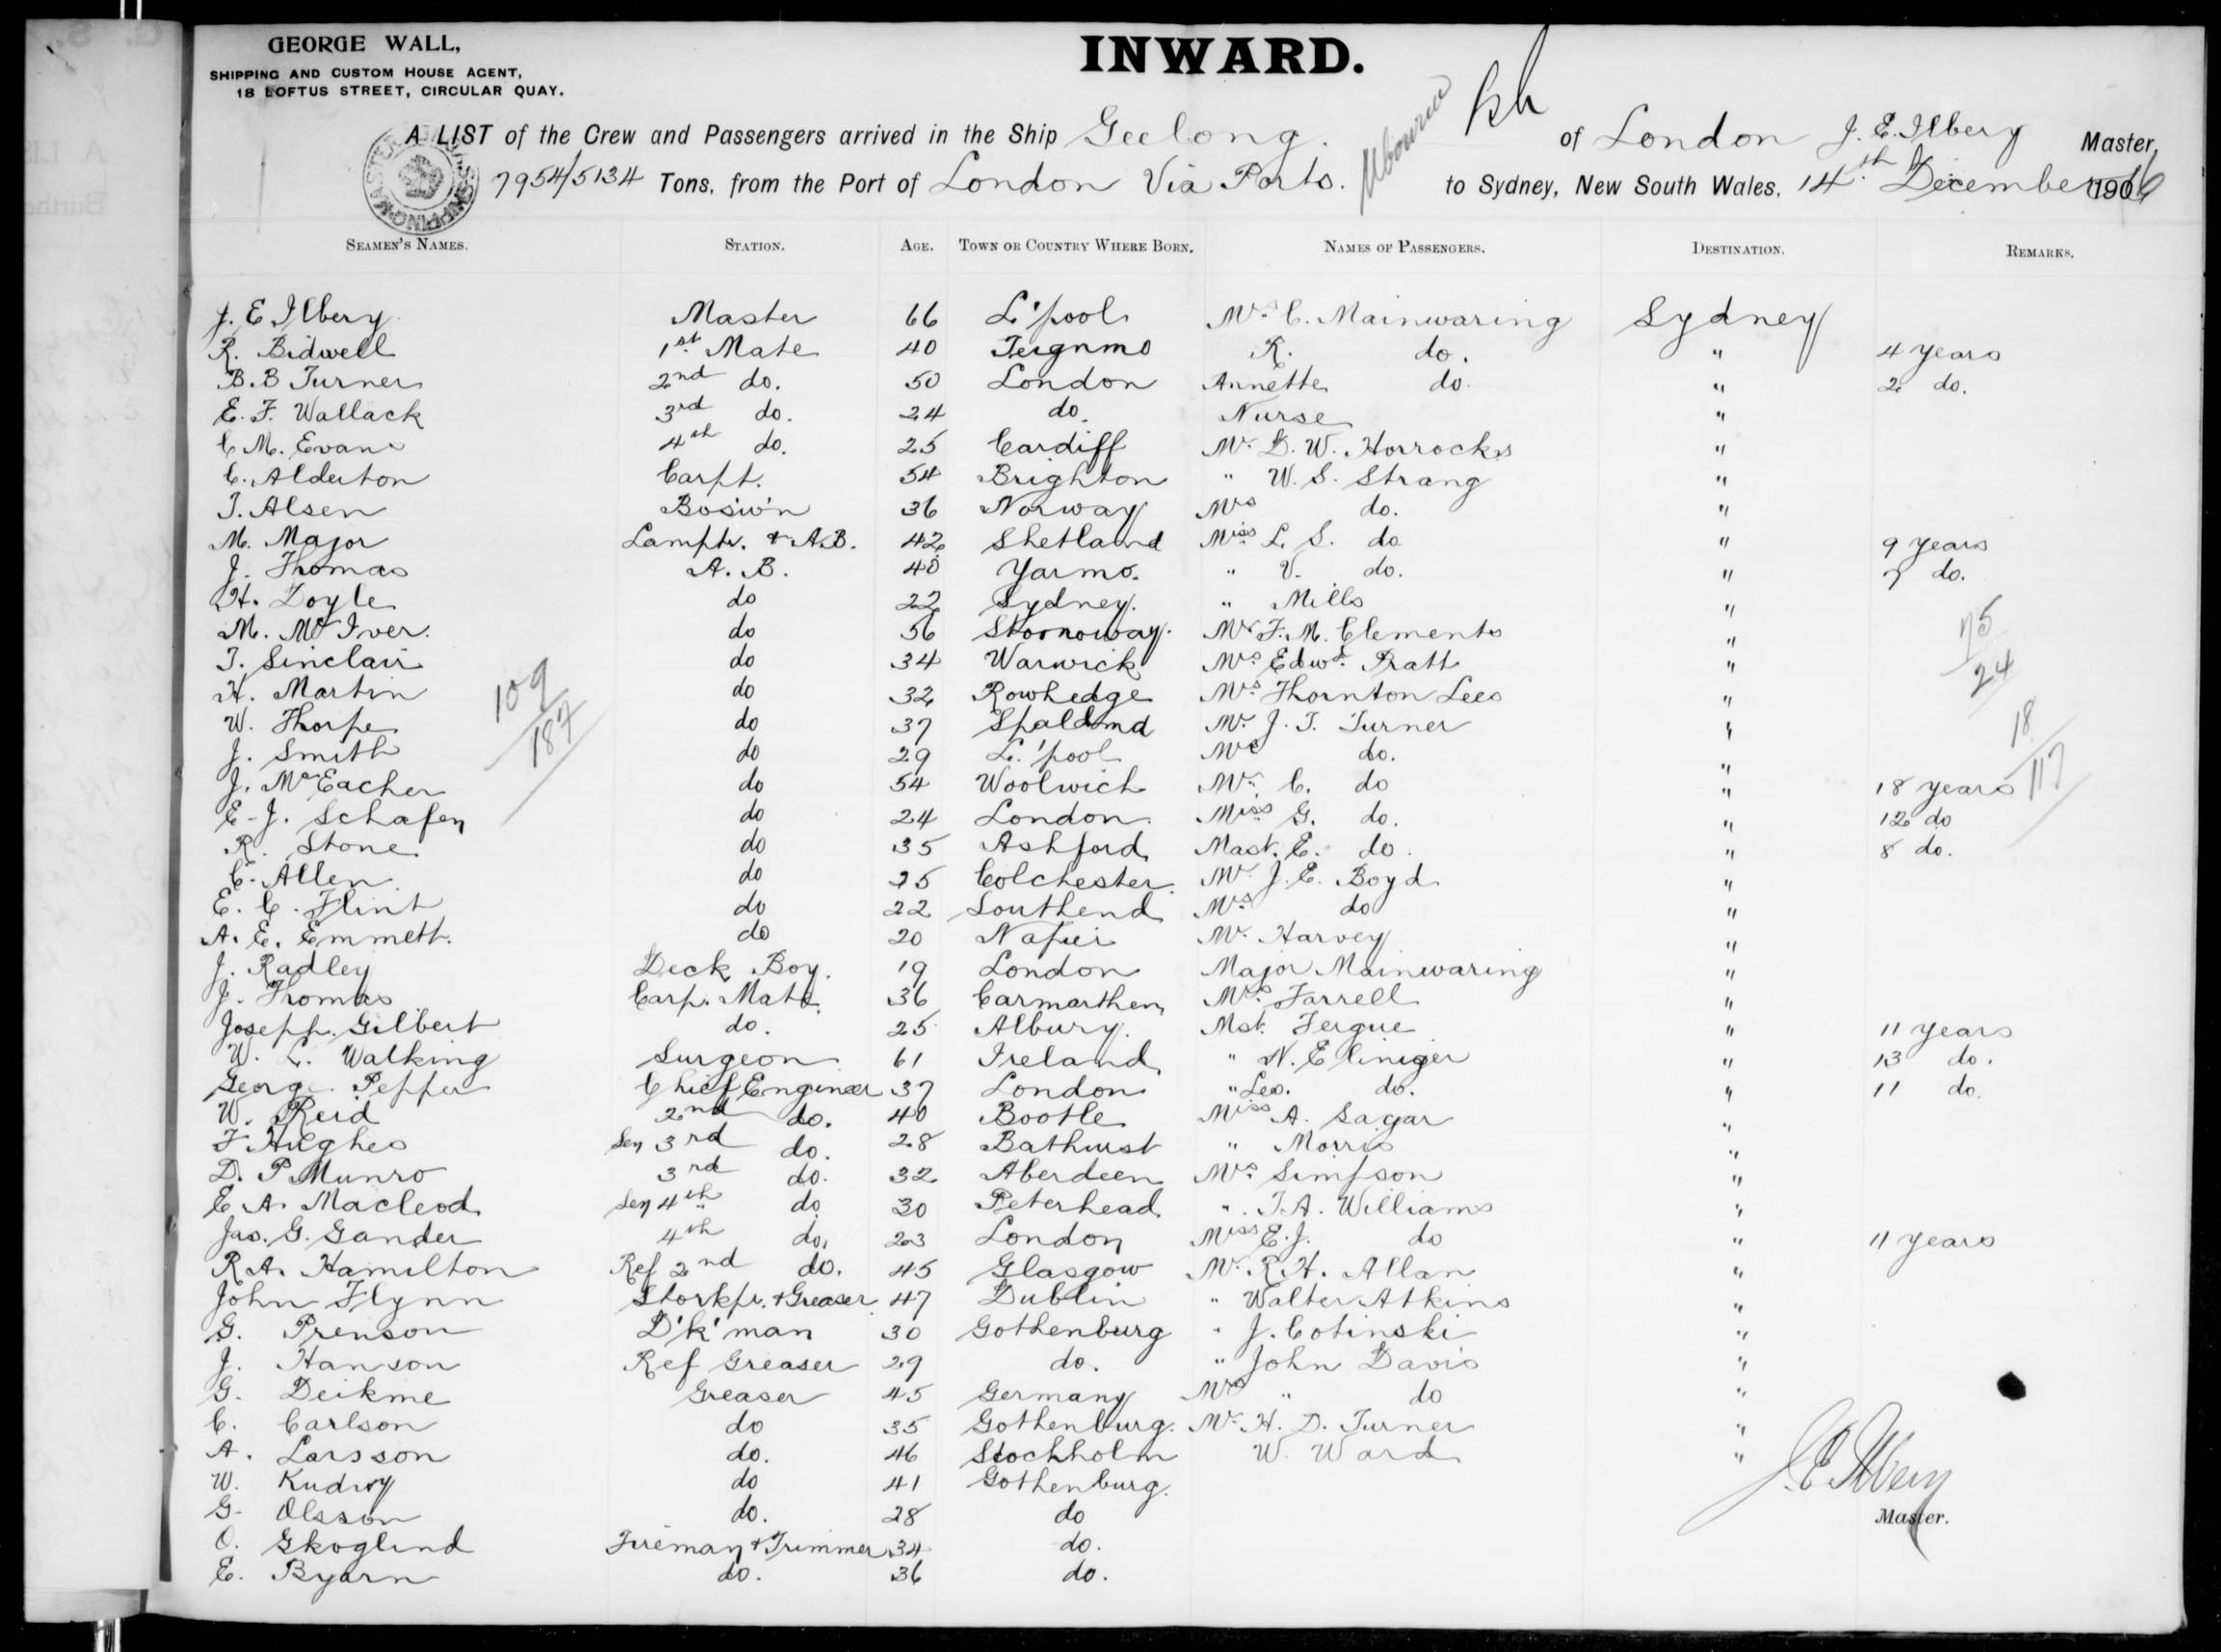 GEORGE WALL,
SHIPPING AND CUSTOM HOUSE AGENT,
18 LOFTUS STREET, CIRCULAR QUAY.
INWARD.
A LIST of the Crew and Passengers arrived in the Ship Geelong. of London J. E. Ilbery Master,
7954/5134 Tons, from the Port of London Via Ports. to Sydney, New South Wales, 14th December 1906
SEAMEN'S NAMES. STATION. AGE. TOWN OR COUNTRY WHERE BORN. NAMES OF PASSENGERS. DESTINATION. REMARKS.
J. E Ilbery Master 66 L'pool Mrs C. Mainwaring Sydney
R. Bidwell 1st Mate 40 Teignmo R. do. " 4 years
B. B Turner 2nd do. 50 London Annette do. " 2 do.
E. F. Wallack 3rd do. 24 do. Nurse "
C M. Evans 4th do. 25 Cardiff Mr D. W. Horrocks "
C. Alderton Carpt. 54 Brighton " W. S. Strang "
T. Alsen Bosi'n 36 Norway Mrs do. "
M. Major Lamptr. & A.B. 42 Shetland Miss L. S. do " 9 years
J. Thomas A. B. 40 Yarmo. " V. do. " 7 do.
H. Doyle do 22 Sydney. " Mills "
M. McIver. do 56 Stornoway. Mr F. M. Clements " 75
T. Sinclair do 34 Warwick Mrs Edwd. Pratt " 24
H. Martin 109 do 32 Rowhedge Mrs Thornton Lees "
W. Thorpe 187 do 37 Mr. J. T. Turner " 18
J. Smith do 29 L'pool Mrs do. " 117
J. McEacher do 54 Woolwich Mr. C. do " 18 years
E. J. Schafen do 24 London. Miss G. do. " 12 do
R. Stone do 35 Ashford Mast. E. do. " 8 do.
C. Allen do 25 Colchester. Mr J. E. Boyd "
E. C. Flint do 22 Southend Mrs do "
A. E. Emmett. do 20 Napier Mr. Harvey "
J. Radley Deck Boy. 19 London Major Mainwaring "
J. Thomas Carp. Mate 36 Carmarthen Mrs Farrell "
Joseph Gilbert do. 25 Albury. Mst. Fergue " 11 years
W. L. Walking Surgeon 61 Ireland " N. Eliniger " 13 do.
George Pepper Chief Engineer 37 London " Leo. do. " 11 do.
W. Reid 2nd do. 40 Bootle Miss A. Sagar "
F Hughes Sen 3rd do. 28 Bathurst " Morris "
D. P Munro 3rd do. 32 Aberdeen Mrs Simpson "
E A. Macleod Sen 4th do 30 Peterhead " T. A. Williams "
Jas. G. Gander 4th do. 23 London Miss E. J. do " 11 years
R A. Hamilton Ref 2nd do. 45 Glasgow Mr. R. H. Allan "
John Flynn Storkpr. & Greaser 47 Dublin " Walter Atkins "
G. Prenson D'k'man 30 Gothenburg " J. Cotinski "
J. Hanson Ref Greaser 29 do. " John Davis "
G. Deikme Greaser 45 Germany Mrs " do "
C. Carlson do 35 Gothenburg. Mr. H. D. Turner "
A. Larsson do. 46 Stockholm W. Ward "
W. Kudwy do 41 Gothenburg. J. E. Ilbery
G. Olsson do. 28 do Master.
O. Skoglind Fireman & Trimmer 34 do.
E. Byarn do. 36 do.